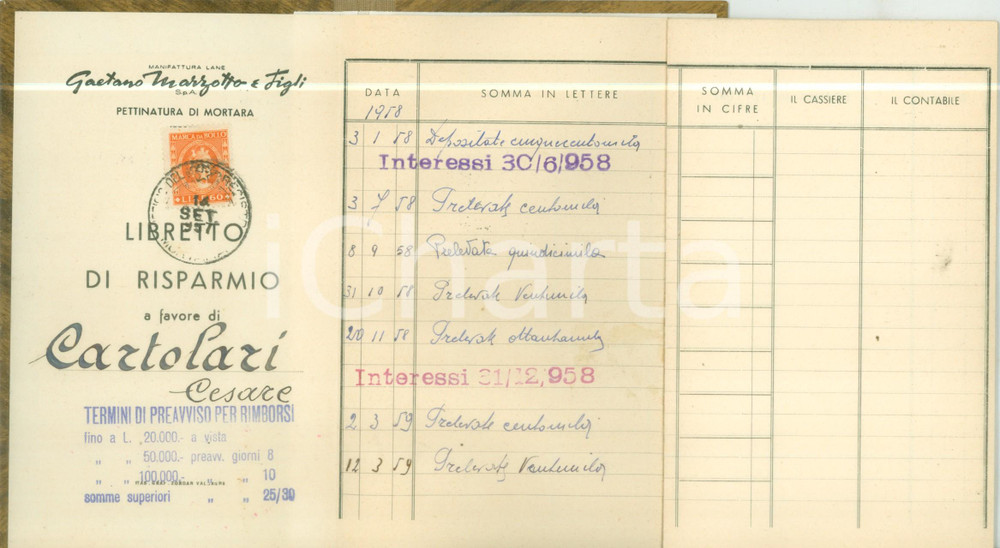 MANIFATTURA LANE
Gaetano Marzotto e Figli
S.p.A.
PETTINATURA DI MORTARA
MARCA DA BOLLO
LIRE 60
14
SET
957
LIBRETTO
DI RISPARMIO
a favore di
Cartolari
Cesare
TERMINI DI PREAVVISO PER RIMBORSI
fino a L. 20.000.- a vista
" " 50.000.- preavv. giorni 8
" " 100.000.- " " 10
somme superiori " " 25/30
DATA SOMMA IN LETTERE
1958
3 1 58 Depositate cinquecentomila
Interessi 30/6/958
3 7 58 Prelevate centomila
8 9 58 Prelevate quindicimila
31 10 58 Prelevate Ventimila
20 11 58 Prelevate ottantamila
Interessi 31/12/958
2 3 59 Prelevate centomila
12 3 59 Prelevate Ventimila
SOMMA IN CIFRE IL CASSIERE IL CONTABILE
iCharta